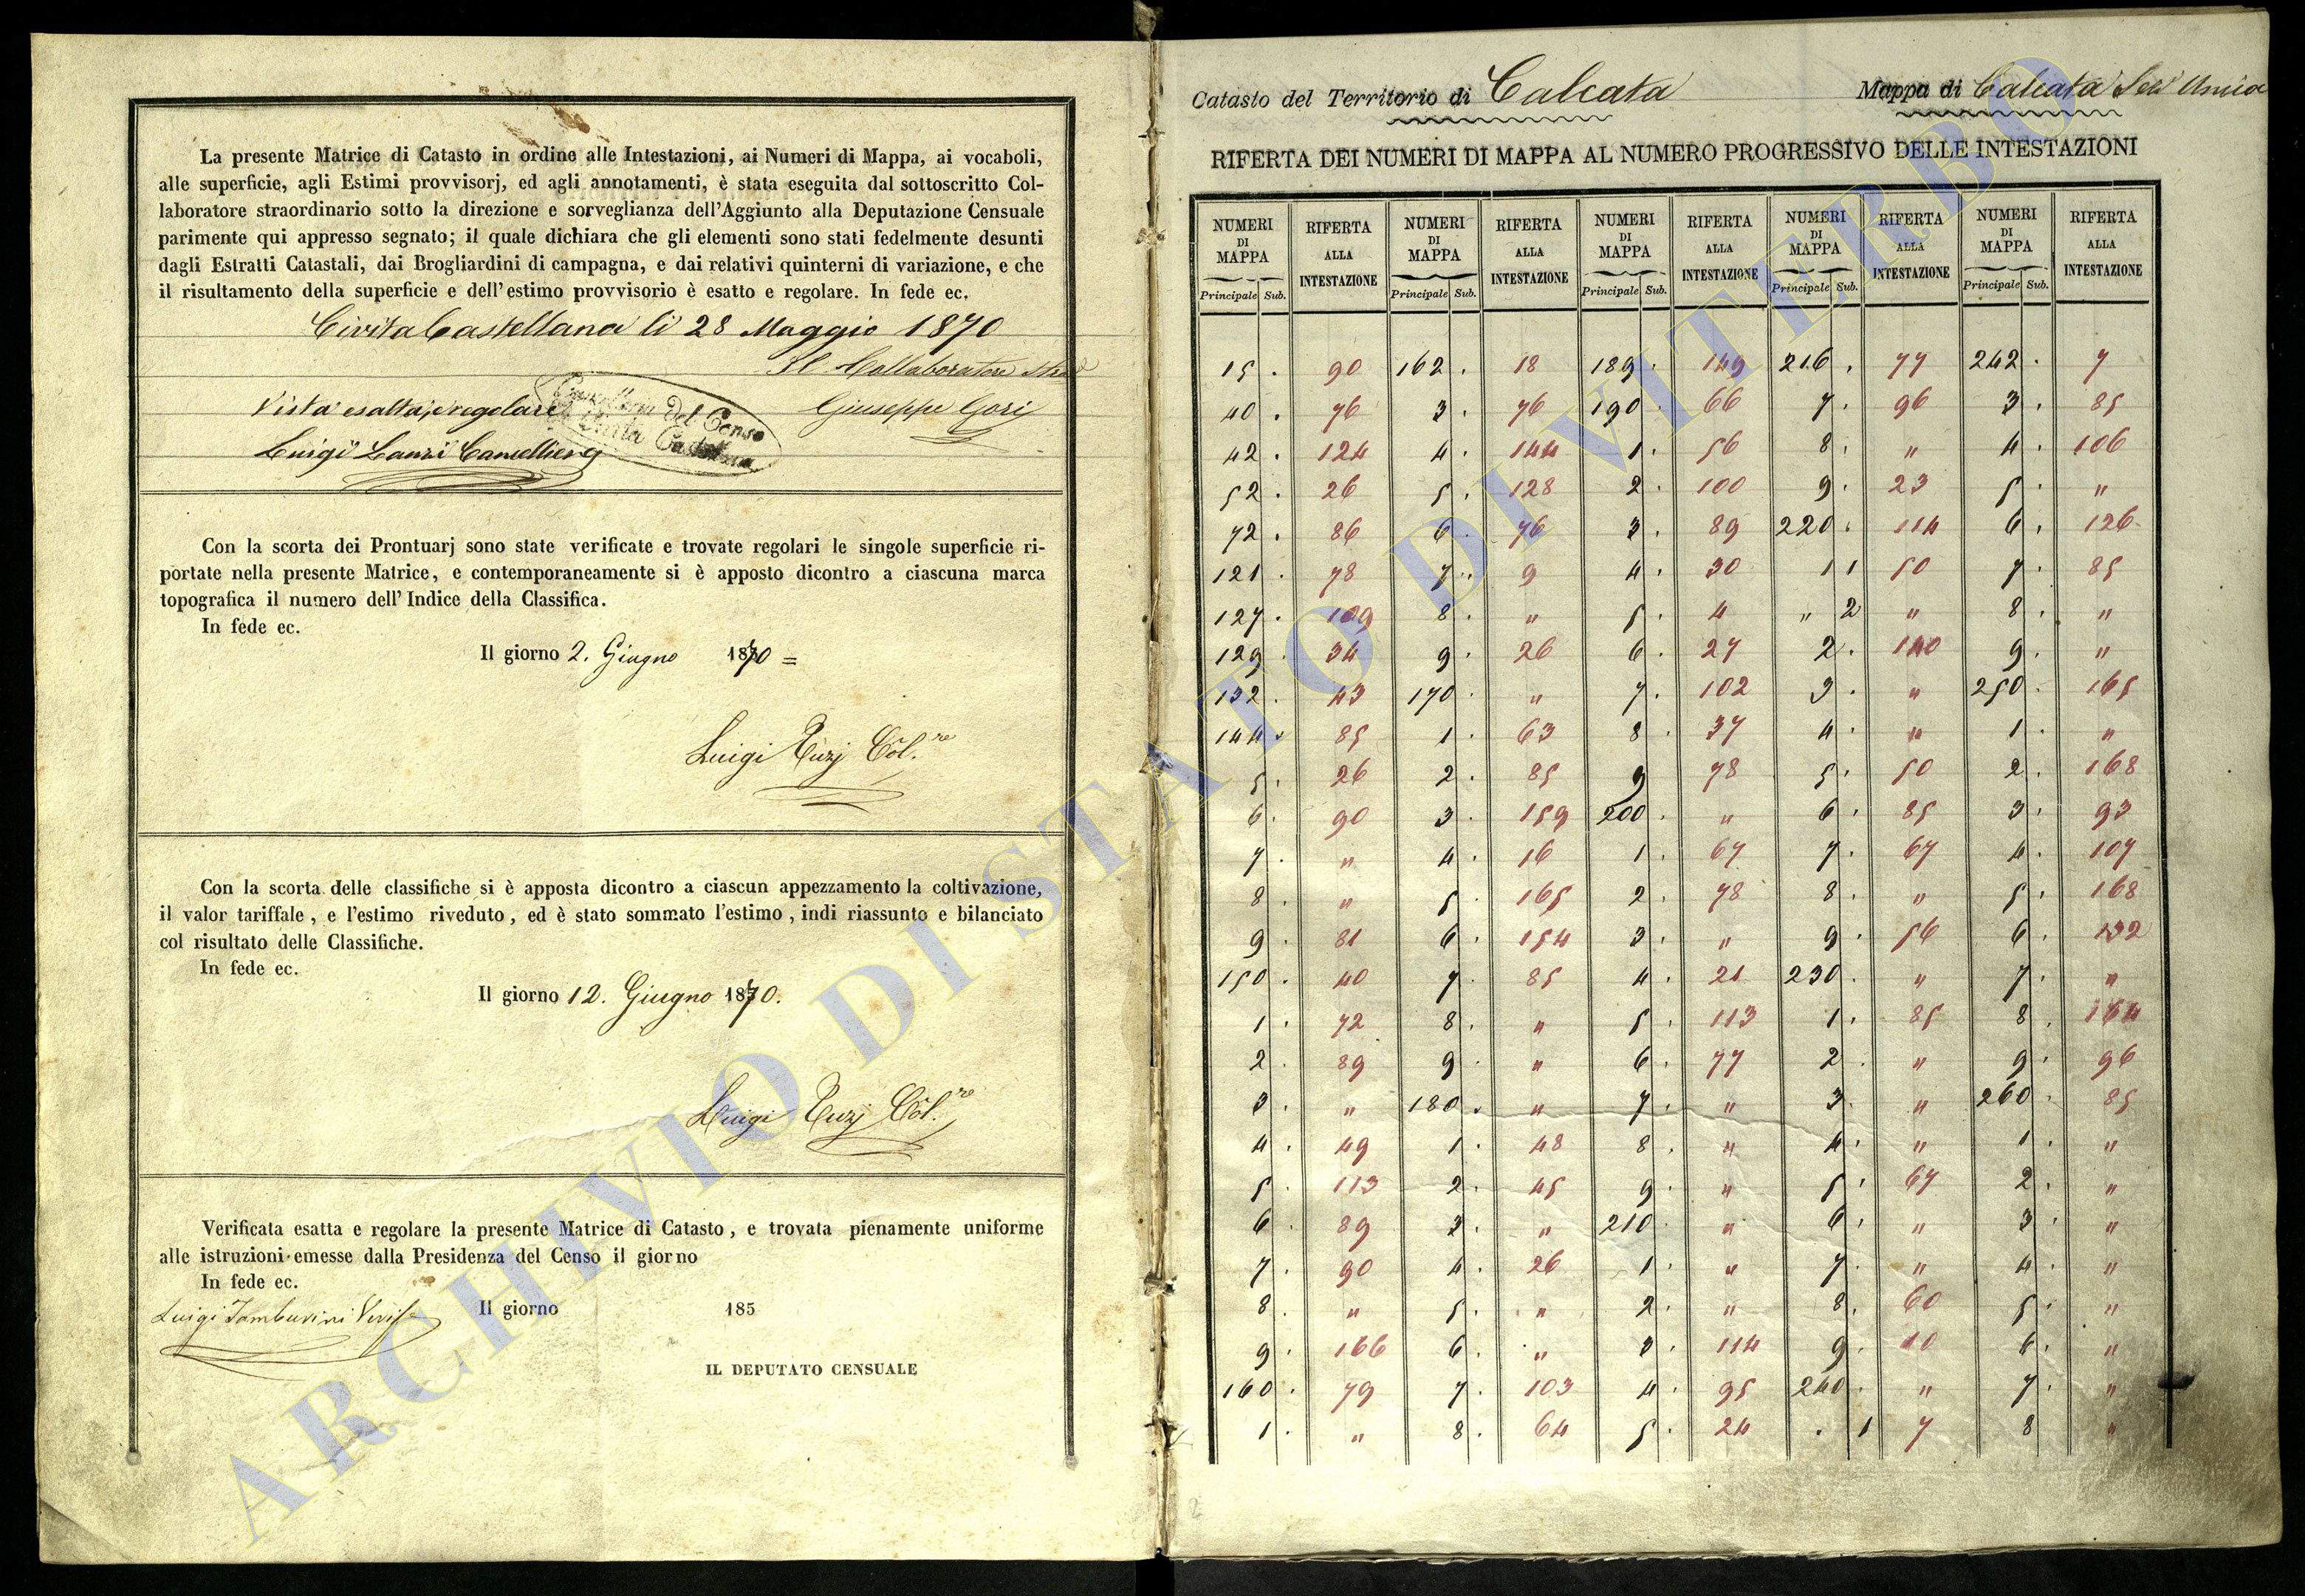 La presente Matrice di Catasto in ordine alle Intestazioni, ai Numeri di Mappa, ai vocaboli,
alle superficie, agli Estimi provvisorj, ed agli annotamenti, è stata eseguita dal sottoscritto Col-
laboratore straordinario sotto la direzione e sorveglianza dell'Aggiunto alla Deputazione Censuale
parimente qui appresso segnato; il quale dichiara che gli elementi sono stati fedelmente desunti
dagli Estratti Catastali, dai Brogliardini di campagna, e dai relativi quinterni di variazione, e che
il risultamento della superficie e dell'estimo provvisorio è esatto e regolare. In fede ec.
Civita Castellana li 28 Maggio 1870
Il Collaboratore
Vista esatta, e regolare Giuseppe Gori
Luigi Lanzi Cancelliere
del Censo
Con la scorta dei Prontuarj sono state verificate e trovate regolari le singole superficie ri-
portate nella presente Matrice, e contemporaneamente si è apposto dicontro a ciascuna marca
topografica il numero dell'Indice della Classifica.
In fede ec.
Il giorno 2. Giugno 1870 =
Luigi
Con la scorta delle classifiche si è apposta dicontro a ciascun appezzamento la coltivazione,
il valor tariffale, e l'estimo riveduto, ed è stato sommato l'estimo, indi riassunto e bilanciato
col risultato delle Classifiche.
In fede ec.
Il giorno 12. Giugno 1870.
Luigi
Verificata esatta e regolare la presente Matrice di Catasto, e trovata pienamente uniforme
alle istruzioni emesse dalla Presidenza del Censo il giorno
In fede ec.
Luigi Tamburini Il giorno 185
IL DEPUTATO CENSUALE
Catasto del Territorio di Calcata Mappa di Calcata Sez Unica
RIFERTA DEI NUMERI DI MAPPA AL NUMERO PROGRESSIVO DELLE INTESTAZIONI
NUMERI DI MAPPA RIFERTA ALLA INTESTAZIONE NUMERI DI MAPPA RIFERTA ALLA INTESTAZIONE NUMERI DI MAPPA RIFERTA ALLA INTESTAZIONE NUMERI DI MAPPA RIFERTA ALLA INTESTAZIONE NUMERI DI MAPPA RIFERTA ALLA INTESTAZIONE
Principale Sub. Principale Sub. Principale Sub. Principale Sub. Principale Sub.
15 . 90 162 . 18 189 . 149 216 . 77 242 . 7
40 . 76 3 . 76 190 . 66 7 . 96 3 . 85
42 . 124 4 . 144 1 . 56 8 . " 4 . 106
52 . 26 5 . 128 2 . 100 9 . 23 5 . "
72 . 86 6 . 76 3 . 89 220 . 114 6 . 126
121 . 78 7 . 9 4 . 30 1 1 50 7 . 85
127 . 109 8 . " 5 . 4 " 2 " 8 . "
129 . 34 9 . 26 6 . 27 2 . 140 9 . "
132 . 43 170 . " 7 . 102 3 . " 250 . 165
144 . 85 1 . 63 8 . 37 4 . " 1 . "
5 . 26 2 . 85 9 78 5 . 50 2 . 168
6 . 90 3 . 159 200 . " 6 . 85 3 . 93
7 . " 4 . 16 1 . 67 7 . 67 4 . 107
8 . " 5 . 165 2 . 78 8 . " 5 . 168
9 . 81 6 . 154 3 . " 9 . 56 6 . 132
150 . 40 7 . 85 4 . 21 230 . " 7 . "
1 . 72 8 . " 5 . 113 1 . 85 8 . 164
2 . 89 9 . " 6 . 77 2 . " 9 . 96
3 . " 180 . " 7 . " 3 . " 260 . 85
4 . 49 1 . 48 8 . " 4 . " 1 . "
5 . 113 2 . 45 9 . " 5 . 67 2 . "
6 . 89 3 . " 210 . " 6 . " 3 . "
7 . 90 4 . 26 1 . " 7 . " 4 . "
8 . " 5 . " 2 . " 8 . 60 5 . "
9 . 166 6 . " 3 . 114 9 . 10 6 . "
160 . 79 7 . 103 4 . 95 240 . " 7 . "
1 . " 8 . 64 5 . 24 . 1 7 8 "
ARCHIVIO DI STATO DI VITERBO